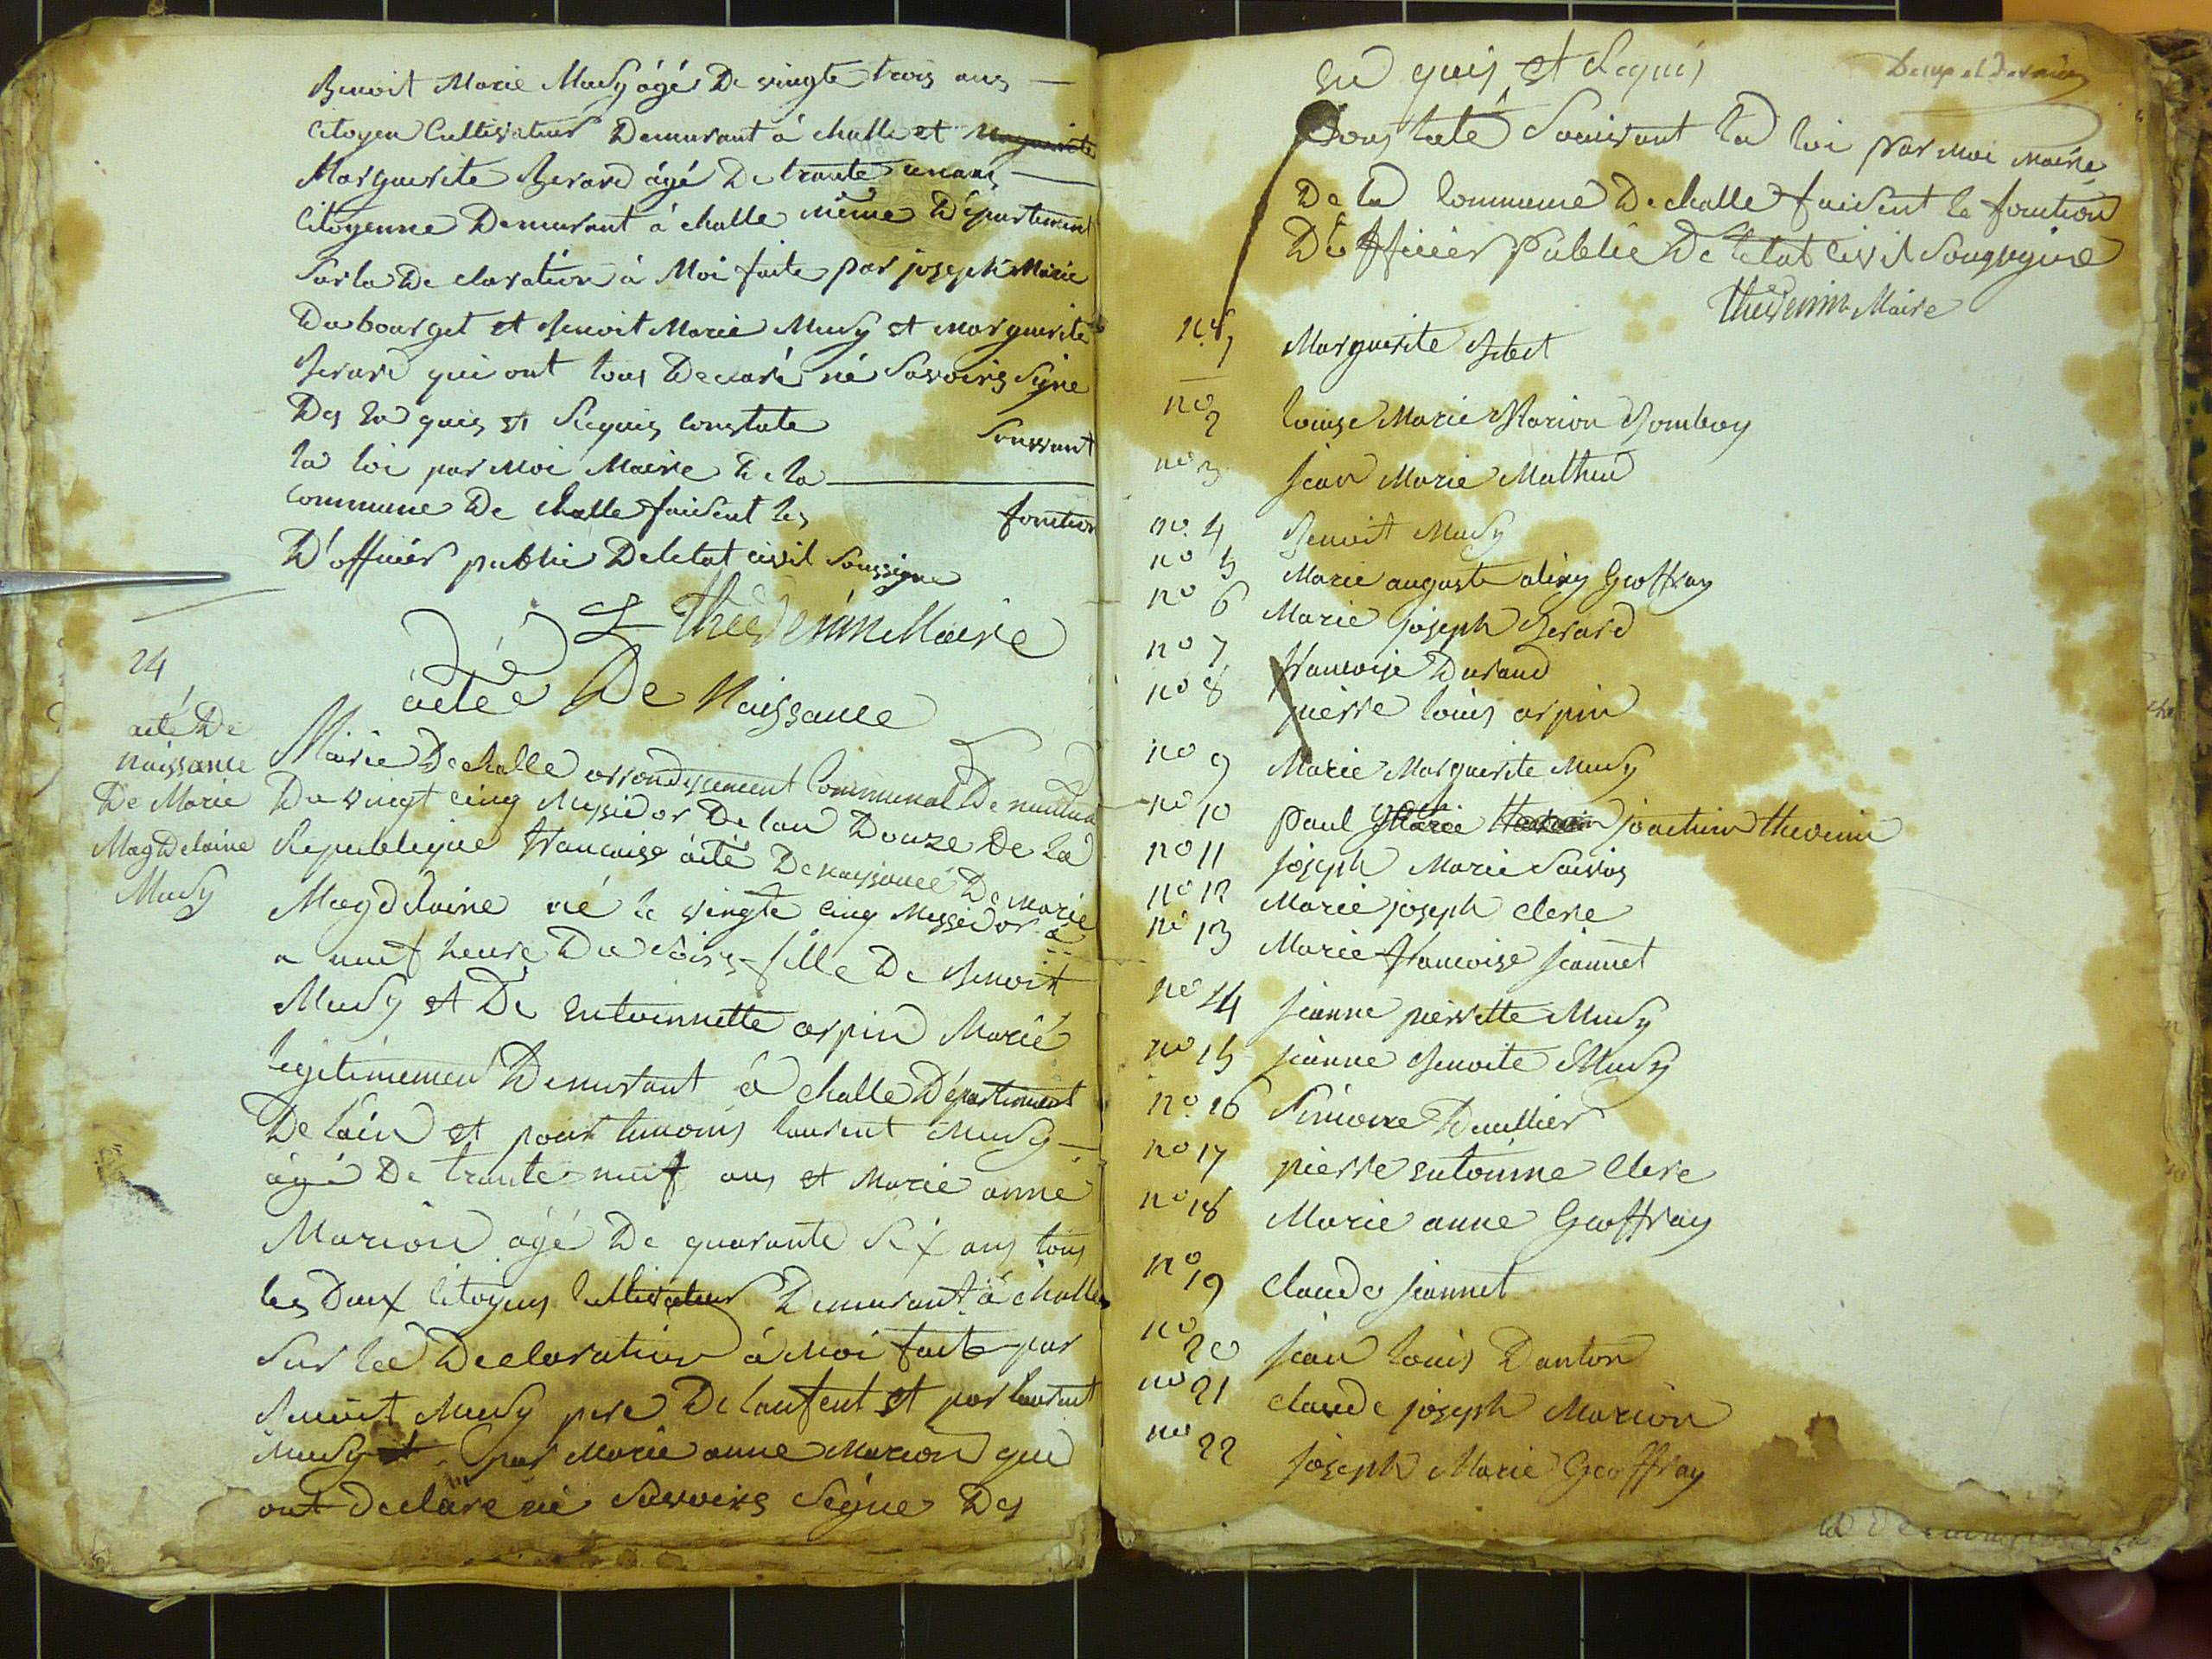 Benoit Marie Mudy âgé De vingte trois ans
Citoyen Cultivateur Demurant à challe et Marguerite
Marguerite Berard âgé De trante unans
Citoyenne Demurant à challe même Département
Sur la Declaration à Moi faite par joseph Marie
Dubourget et Benoit Marie Mudy et marguerite
Berard qui ont tous Declaré né Savoirs Signe
Des la quis et Sequis Constate Souvant
la loi par Moi Maire De la
Commune De challe faisent les fonction
D'officier public Deletat civil Soussigne
Thevenin Maire
24
acté De
naissance
De Marie
Magdelaine
Mudy
actée De Naissance
Mairie De challe arrondissement Communal De nantua
Du vingt cinq Messidor De lan Douze De la
Republique francaise acté De naissance De Marie
Magdelaine né le vingte cinq Messidor à
a neuf heure Du soirs fille De Benoit
Mudy et De entoinnette arpin Marié
legitimemen Demurant à challe Département
De lain et pour temoins laurent Mudy
âgé De trante neuf ans et Marie anne
Marion âgé De quarante Six ans tous
les Deux Citoyens Cultivateur Demurant à challe
Sur lae Declaration à Moi faite par
Benoit Mudy pere De lanfent et par laurent
Mudy et par Marie anne Marion que
ont Declare né Savoirs Signe Des
en quis et Sequis
Deup et Dernier
Constaté Souivant la loi par Moi Maire
De la Commune De challe faisent le fonction
D'officier Public De letat Civil Sousigne
thevenin Maire
n.° 1 Marguerite
n° 2 louise Marie Marion
n° 3 jean Marie Mathieu
n° 4 Benoit Mudy
n° 5 Marie auguste Geoffray
n° 6 Marie joseph Berard
n° 7 francoise Durand
n° 8 pierre louis arpin
n° 9 Marie Marguerite Mudy
n° 10 Paul joachim thevenin
n° 11 joseph Marie
n° 12 Marie joseph Clere
n° 13 Marie francoise jeannet
n° 14 jeanne pierrette Mudy
n° 15 jeanne Benoite Mudy
n° 16 Simonne
n° 17 pierre entoinne Clere
n° 18 Marie anne Geoffray
n° 19 Claude jeannet
n° 20 jean louis Danton
n° 21 Claude joseph Marion
n° 22 joseph Marie Geoffray